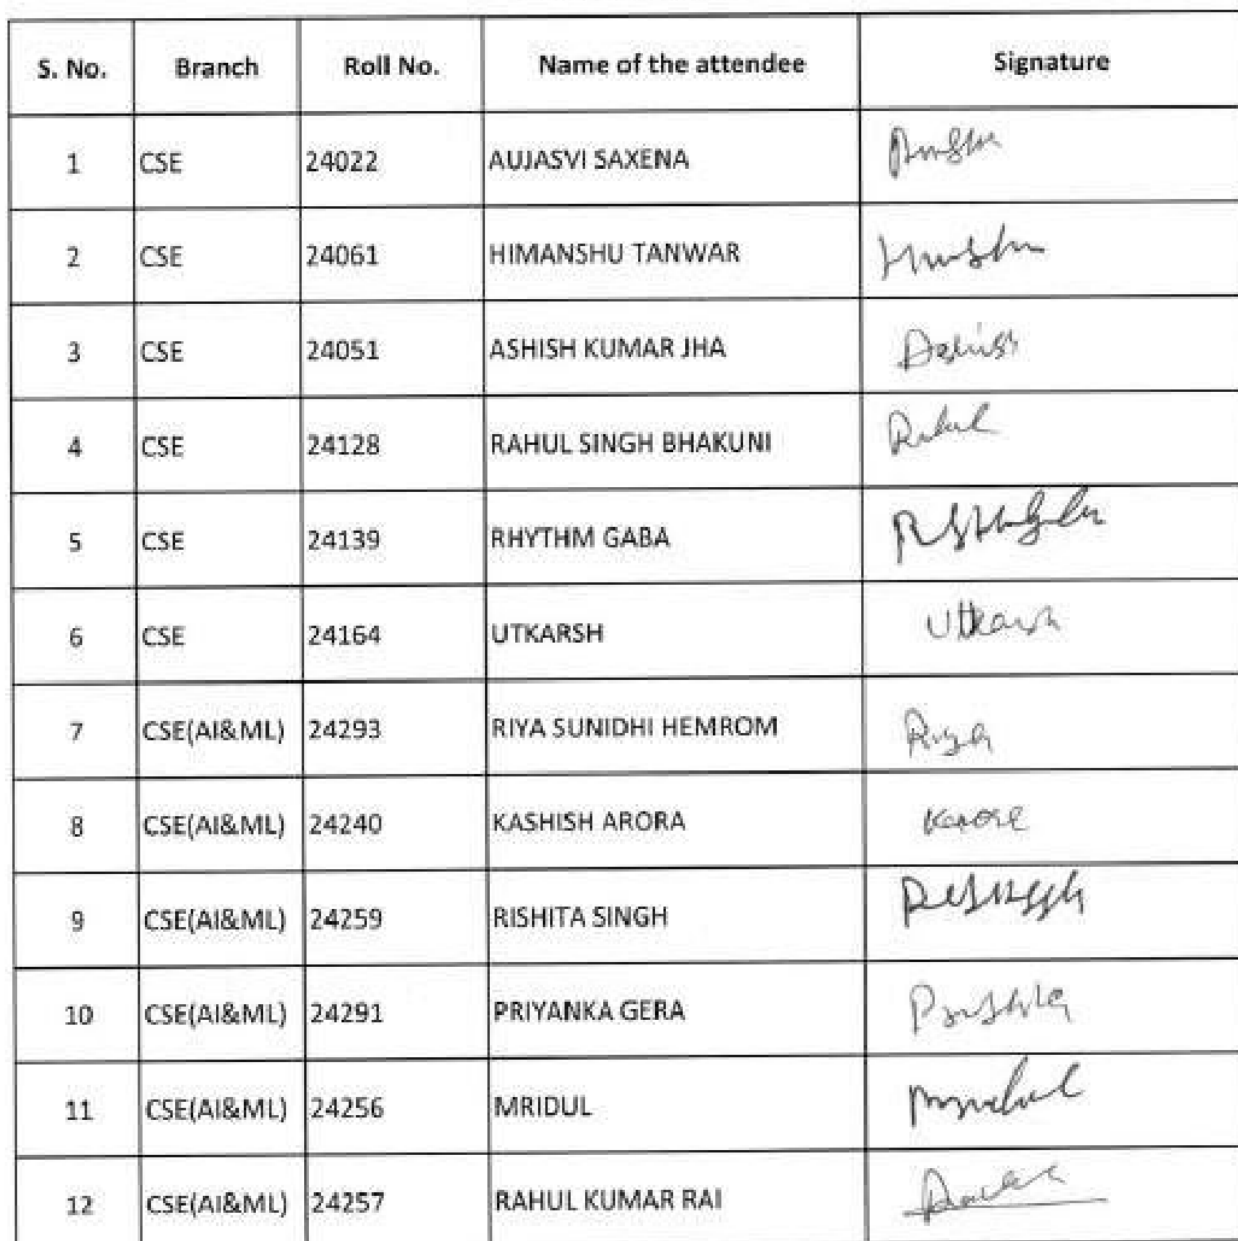 S. No. Branch Roll No. Name of the attendee Signature
1 CSE 24022 AUJASVI SAXENA
2 CSE 24061 HIMANSHU TANWAR
3 CSE 24051 ASHISH KUMAR JHA Ashish
4 CSE 24128 RAHUL SINGH BHAKUNI Rahul
5 CSE 24139 RHYTHM GABA
6 CSE 24164 UTKARSH Utkarsh
7 CSE(AI&ML) 24293 RIYA SUNIDHI HEMROM Riya
8 CSE(AI&ML) 24240 KASHISH ARORA
9 CSE(AI&ML) 24259 RISHITA SINGH
10 CSE(AI&ML) 24291 PRIYANKA GERA
11 CSE(AI&ML) 24256 MRIDUL Mridul
12 CSE(AI&ML) 24257 RAHUL KUMAR RAI